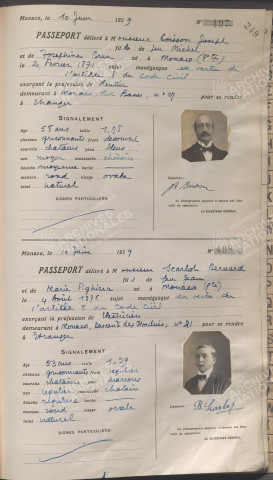 Monaco, le 10 Juin 1929
N° 497
249
PASSEPORT délivré à Monsieur Boisson Joseph
fils de feu Michel
et Josephine Brun né à Monaco (Pté)
le 2 Février 1871 sujet monégasque en vertu de
l'article 8 du Code Civil
exerçant la profession de Rentier
demeurant à Monaco, Rue Basse, n° 27 pour se rendre
à Etranger
SIGNALEMENT
Age 58 ans taille 1,75
cheveux grisonnants front découvert
sourcils chatains yeux bleus
nez moyen moustache chatain
bouche moyenne barbe
menton rond visage ovale
teint naturel
SIGNES PARTICULIERS
Signature :
La photographie apposée ci-dessus est bien
celle du signataire.
LE SECRÉTAIRE GÉNÉRAL,
Monaco, le 10 Juin 1929
N° 498
PASSEPORT délivré à Monsieur Scarlot Bernard
fils de feu Jean
et Marie Pighiera né à Monaco (Pté)
le 4 Août 1875 sujet monégasque en vertu de
l'article 8 du Code Civil
exerçant la profession de
demeurant à Monaco, Descente des Moulins, N° 21 pour se rendre
à Etranger
SIGNALEMENT
Age 53 ans taille 1,39
cheveux grisonnants front régulier
sourcils chatains yeux marrons
nez régulier moustache chatain
bouche régulière barbe
menton rond visage ovale
teint naturel
SIGNES PARTICULIERS
Signature :
B. Scarlot
La photographie apposée ci-dessus est bien
celle du signataire.
LE SECRÉTAIRE GÉNÉRAL,